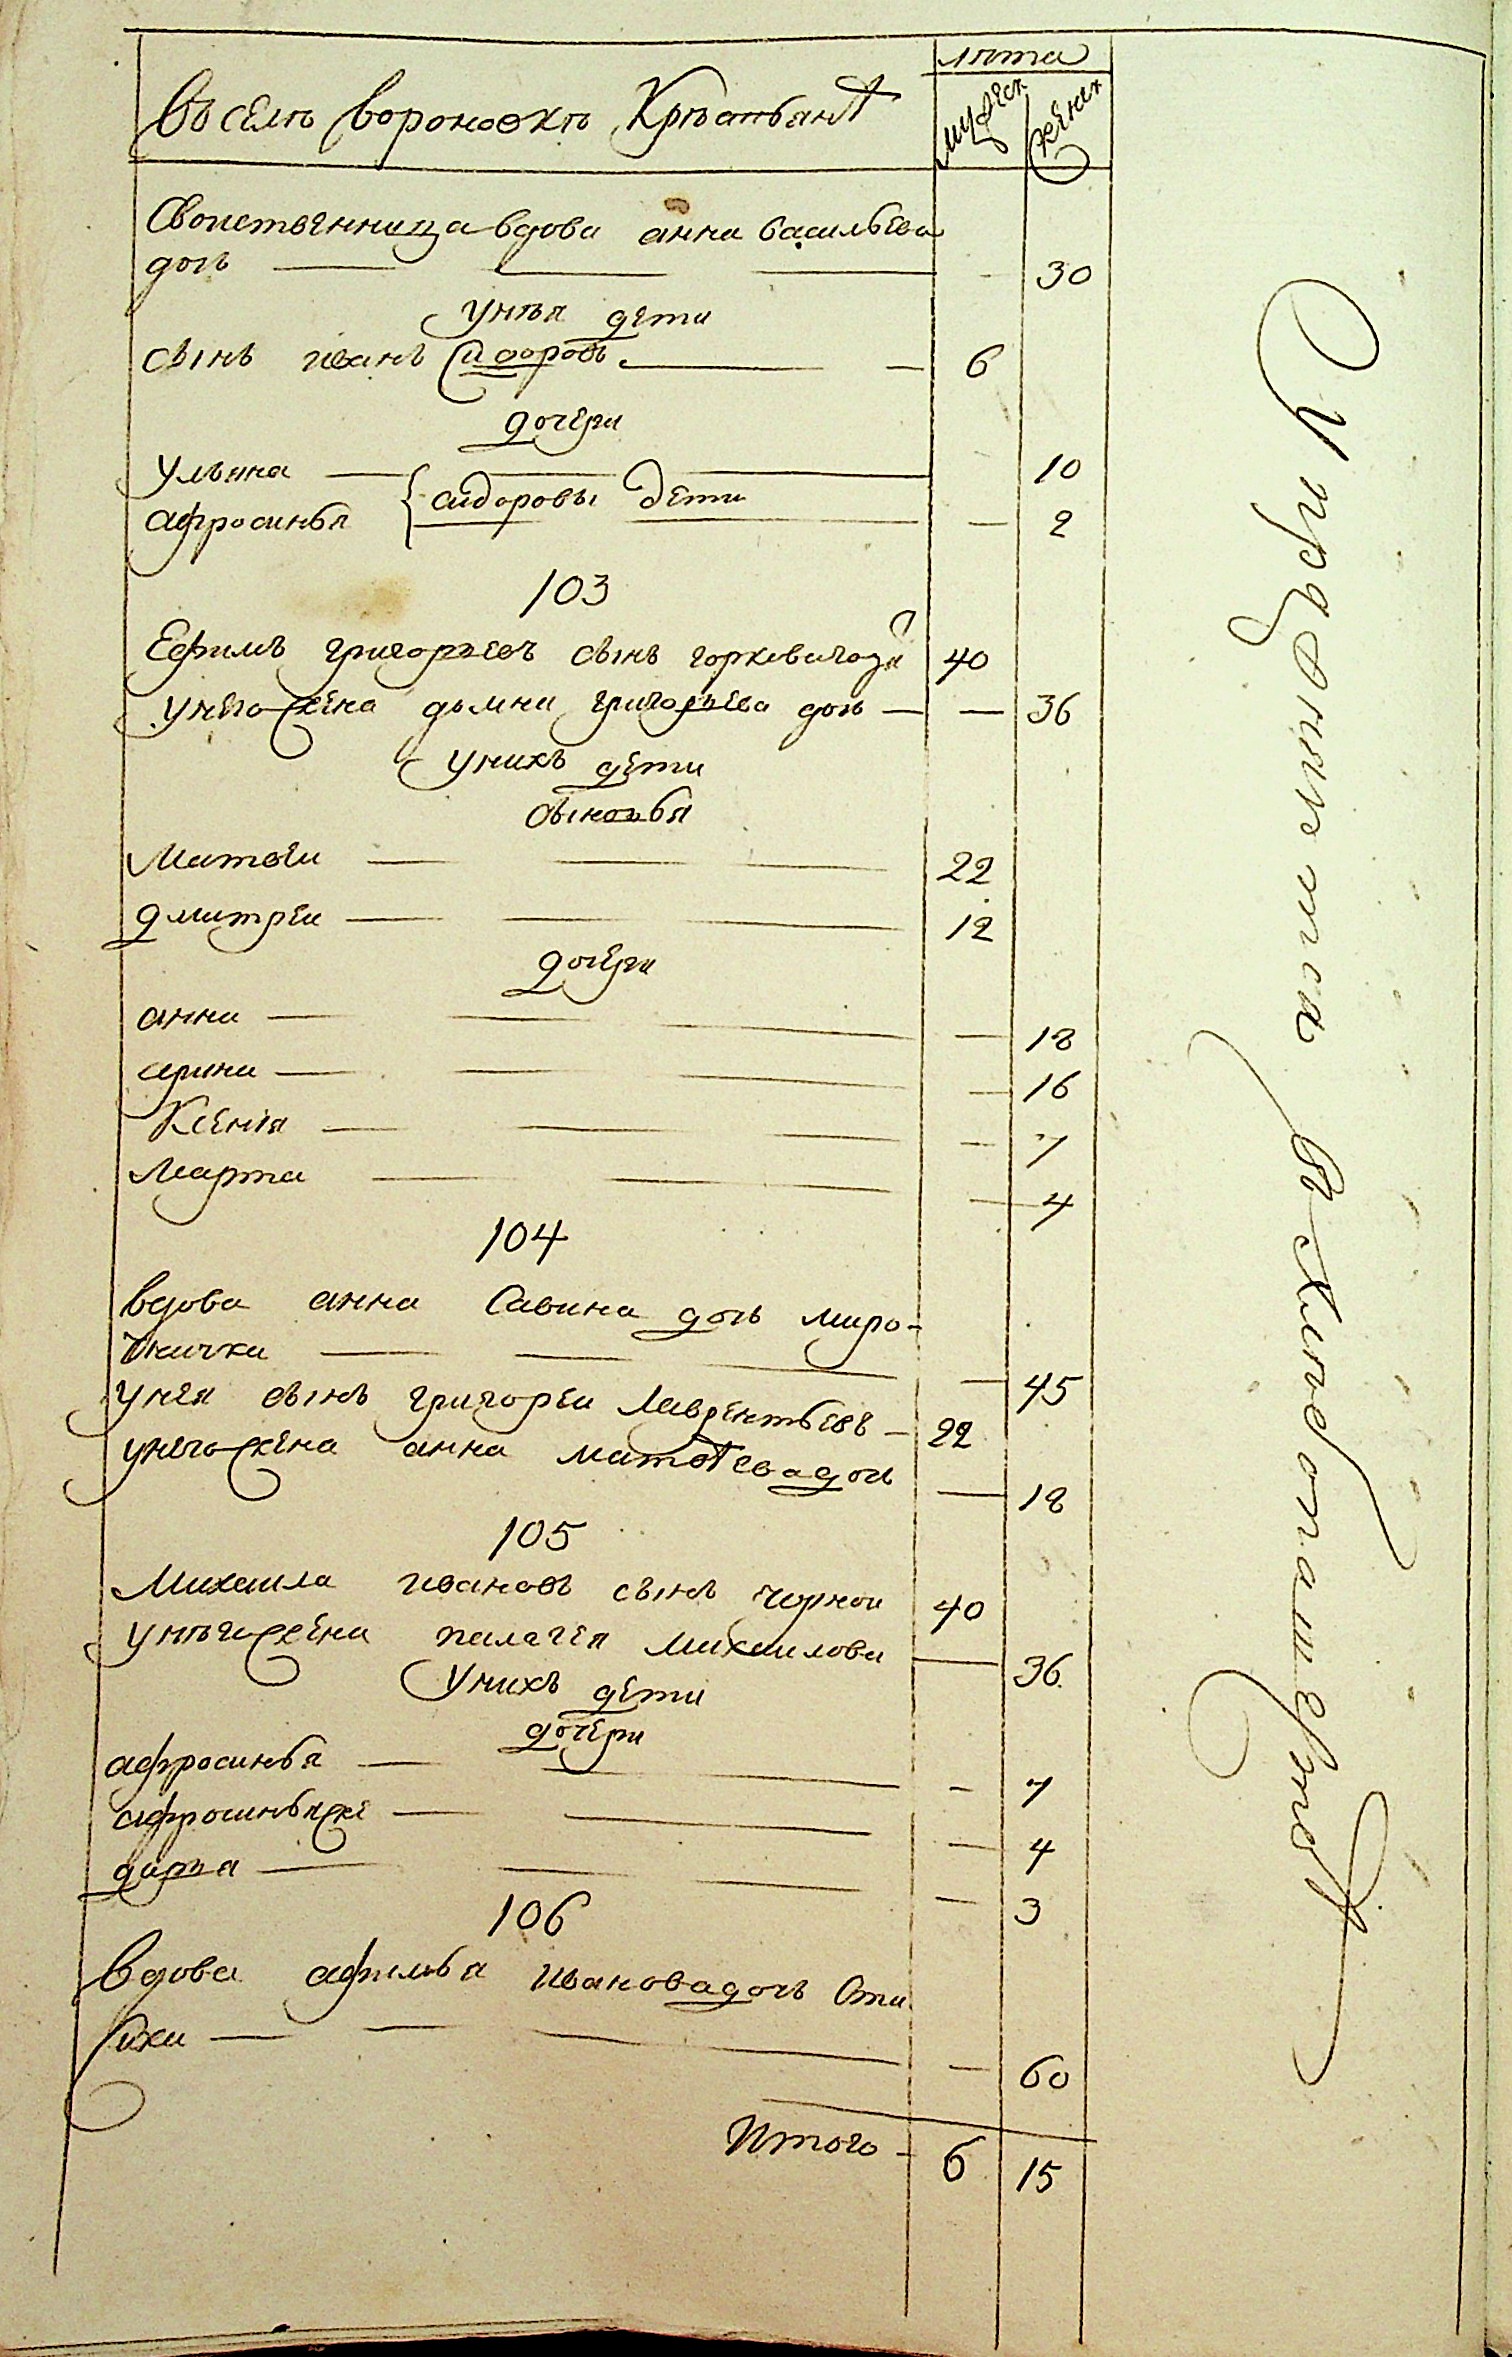 лѣта
Въ селѣ вороновкѣ Крѣстьянѣ
мужеск
женск
Свойственница вдова анна васильева
дочь — 30
унѣя дети
сынъ иванъ Сидоровъ — 6
дочери
ульяна — 10
афросинья { сидоровы дети — 2
103
Ефимъ григорьевъ сынъ 40
унего жена домна григорьева дочь — 36
унихъ дети
сыновья
Матвеи — 22
дмитреи — 12
дочери
анна — 18
арина — 16
Ксенія — 7
Марфа — 4
104
вдова анна Савина дочь миро-
шничка — 45
унея сынъ григореи Лаврентьевъ — 22
унего жена анна матвѣева дочь — 18
105
Михаила ивановъ сынъ чорнои 40
унѣго жена палагея михаилова — 36
Унихъ дети
дочери
афросинья — 7
афросинья же — 4
дарья — 3
106
Вдова афимья иванова дочь
60
Итого — 6 15